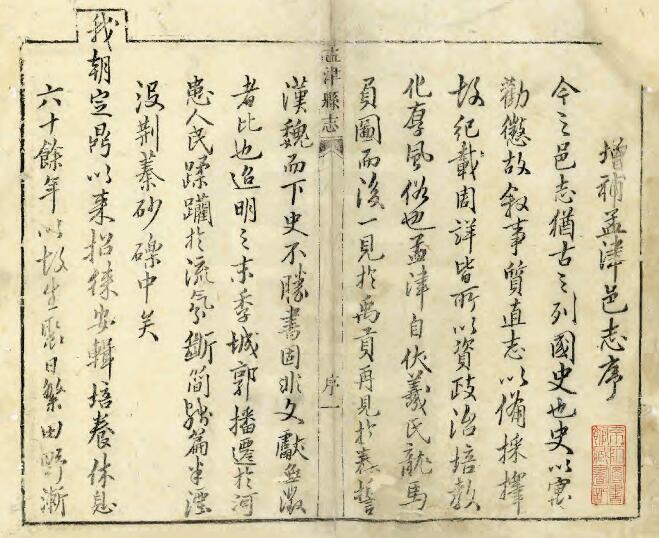 增補孟津邑志序
今之邑志猶古之列國史也史以寓
勸懲故叙事質直志以備採擇
故紀載周詳皆所以資政治培教
化厚風俗也孟津自伏羲氏龍馬
負圖而後一見於禹貢再見於泰誓
孟津縣志
序一
漢魏而下史不勝書固非文獻無徵
者比也迨明之末季城郭播遷於河
患人民蹂躪於流氛斷簡殘篇半湮
沒荆蓁砂礫中矣
我朝定鼎以来招徠安輯培養休息
六十餘年以故生聚日繁田野漸